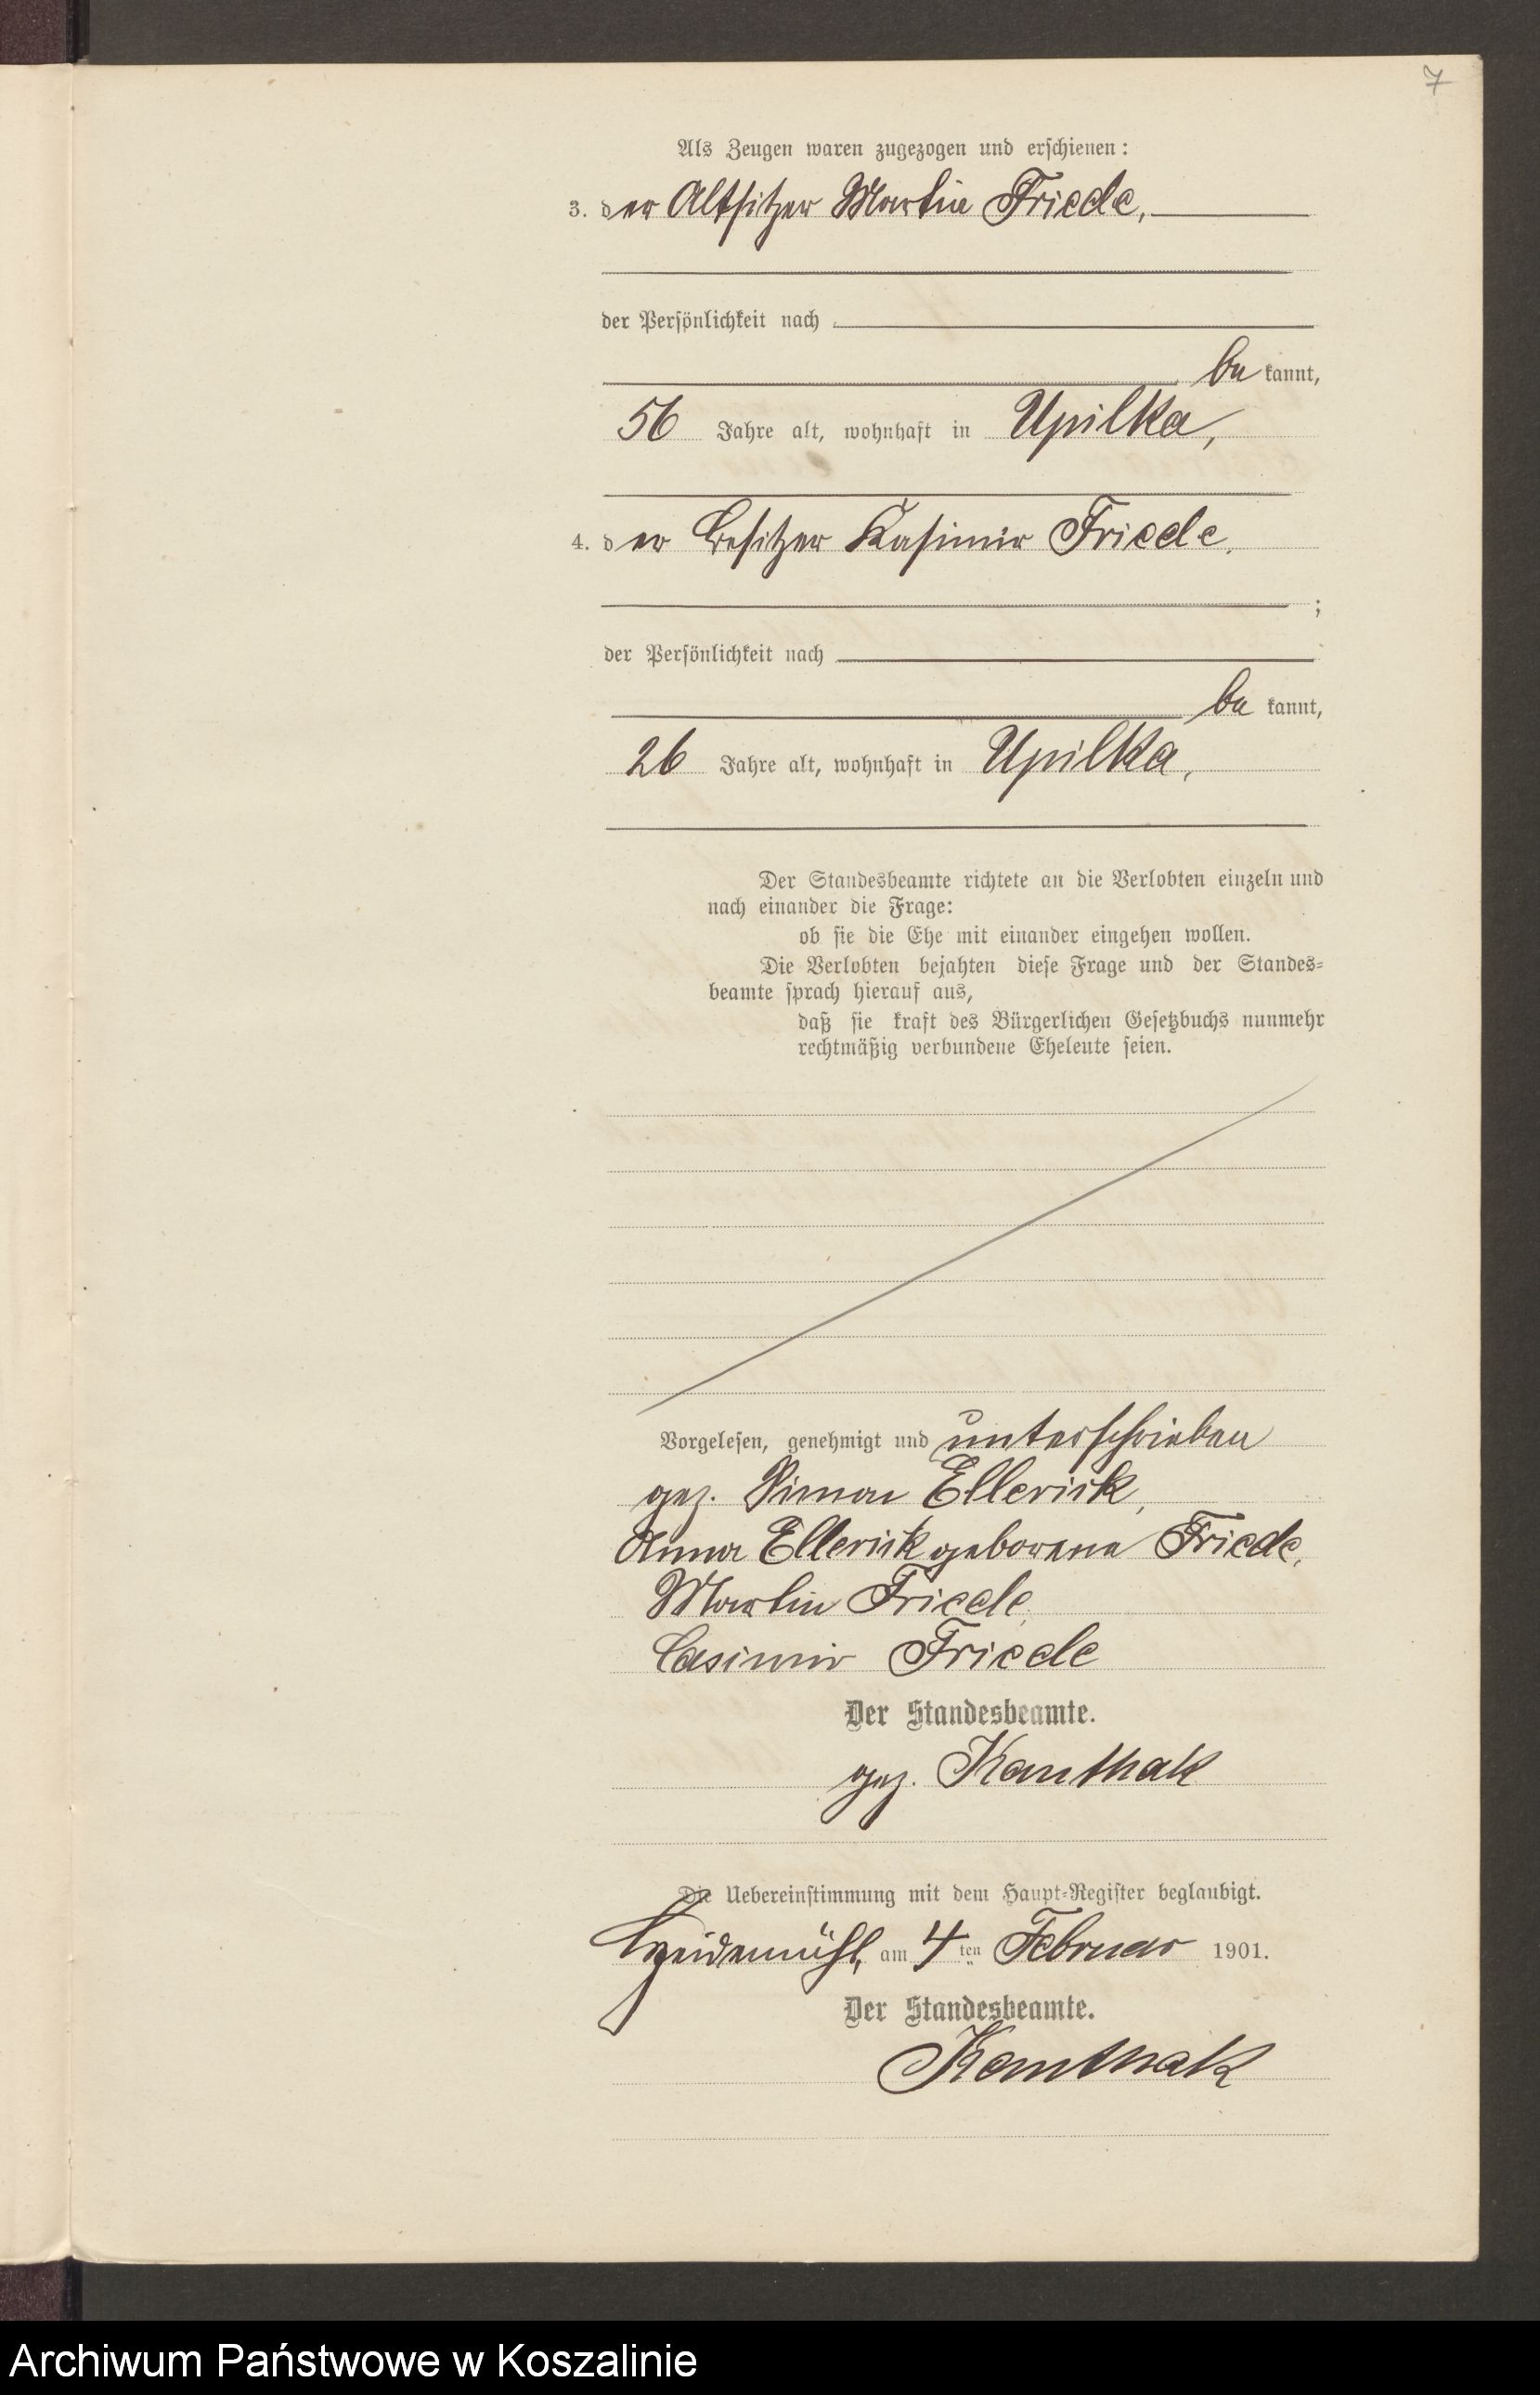 7
Als Zeugen waren zugezogen und erschienen:
3. der Altsitzer Martin Friede,
der Persönlichkeit nach
be kannt,
56 Jahre alt, wohnhaft in Upilka,
4. der Besitzer Kasimir Friede,
;
der Persönlichkeit nach
be kannt,
26 Jahre alt, wohnhaft in Upilka,
Der Standesbeamte richtete an die Verlobten einzeln und
nach einander die Frage:
ob sie die Ehe mit einander eingehen wollen.
Die Verlobten bejahten diese Frage und der Standes=
beamte sprach hierauf aus,
daß sie kraft des Bürgerlichen Gesetzbuchs nunmehr
rechtmäßig verbundene Eheleute seien.
Vorgelesen, genehmigt und unterschrieben
gez. Simon Ellerick,
Anna Ellerick geborene Friede,
Martin Friede,
Casimir Friede
Der Standesbeamte.
gez. Kanthak
Die Uebereinstimmung mit dem Haupt=Register beglaubigt.
am 4 ten Februar 1901.
Der Standesbeamte.
Kanthak
Archiwum Państwowe w Koszalinie